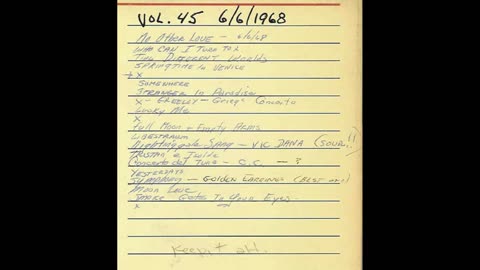 VOL. 45 6/6/1968
No Other Love - 6/6/68
WHO CAN I TURN TO
Two Different Worlds
SPRINGTIME in VENICE
X
SOMEWHERE
STRANGER In Paradise
X - GREELY - Grieg Concerto
Lucky Me
X
Full Moon + Empty Arms
LIBESTRAUM
Nightingale Song - VIC DANA (SOUR!)
TRISTAN e Isolde
Concerto del Tuno - C.C. - 3
YESTERDAYS
GOLDEN EARRINGS
Moon Love
SMOKE Gets In Your Eyes
X
Keep it all